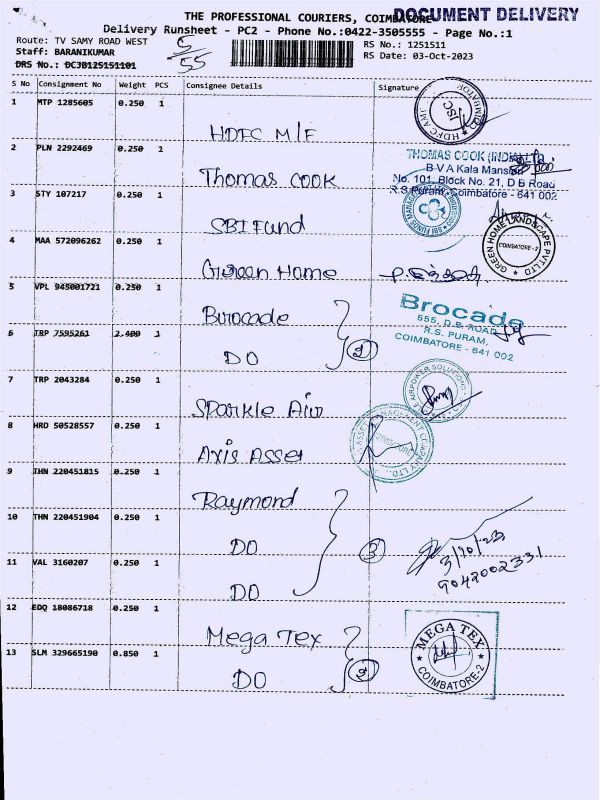 THE PROFESSIONAL COURIERS, COIMBATORE
DOCUMENT DELIVERY
Delivery Runsheet - PC2 - Phone No.:0422-3505555 - Page No.:1
Route: TV SAMY ROAD WEST
RS No.: 1251511
Staff: BARANIKUMAR
RS Date: 03-Oct-2023
DRS No.: DCJB125151101
5/55
S No Consignment No Weight PCS Consignee Details Signature
1 MTP 1285605 0.250 1
HDFC M/F
HDFC AMC
ISC
2 PLN 2292469 0.250 1
Thomas COOK
THOMAS COOK (INDIA) LTD
B V A Kala Mansion
No. 101, Block No. 21, D B Road
R.S Puram, Coimbatore - 641 002
3 STY 107217 0.250 1
SBI Fund
SBI FUNDS MANAGEMENT
4 MAA 572096262 0.250 1
Green Home
GREEN HOME LANDSCAPE PVT LTD
COIMBATORE - 2
5 VPL 945001721 0.250 1
Brocade
Brocade
555, D.B. ROAD
R.S. PURAM,
COIMBATORE - 641 002
6 TRP 7595261 2.400 1
DO
2
7 TRP 2043284 0.250 1
Sparkle Air
AIRPOWER SOLUTIONS
8 HRD 50528557 0.250 1
Axis Asset
AXIS ASSET MANAGEMENT COMPANY LTD.
COIMBATORE
9 IHN 220451815 0.250 1
Raymond
10 THN 220451904 0.250 1
DO
3
3/10/23
9042002331
11 VAL 3160207 0.250 1
DO
12 EDQ 18086718 0.250 1
Mega Tex
MEGA TEX
COIMBATORE-2
13 SLM 329665190 0.850 1
DO
2